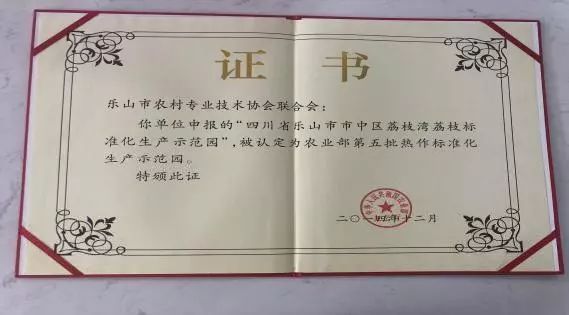 证书
乐山市农村专业技术协会联合会：
你单位申报的“四川省乐山市市中区荔枝湾荔枝标
准化生产示范园”，被认定为农业部第五批热作标准化
生产示范园。
特颁此证
中华人民共和国农业部
二〇一五年十二月